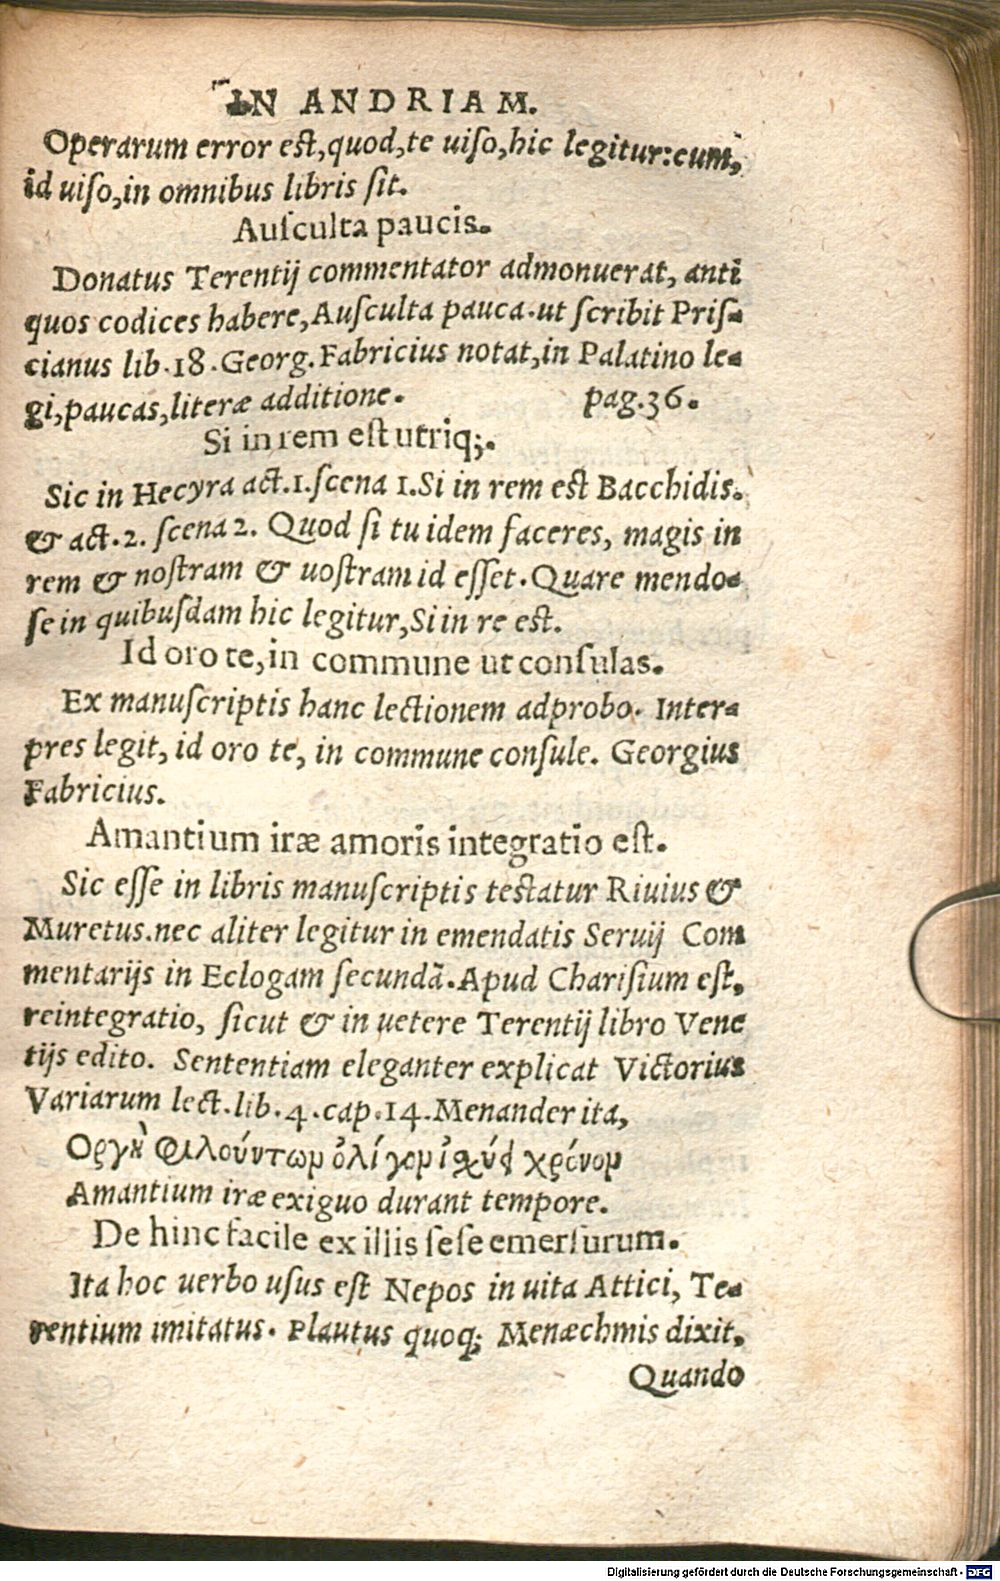 IN ANDRIAM.
Operarum error est, quod, te uiso, hic legitur: cum,
id uiso, in omnibus libris sit.
Ausculta paucis.
Donatus Terentij commentator admonuerat, anti
quos codices habere, Ausculta pauca. ut scribit Pris-
cianus lib. 18. Georg. Fabricius notat, in Palatino le-
gi, paucas, literæ additione. pag. 36.
Si in rem est utriq;.
Sic in Hecyra act. 1. scena 1. Si in rem est Bacchidis.
& act. 2. scena 2. Quod si tu idem faceres, magis in
rem & nostram & uostram id esset. Quare mendo-
se in quibusdam hic legitur, Si in re est.
Id oro te, in commune ut consulas.
Ex manuscriptis hanc lectionem adprobo. Inter-
pres legit, id oro te, in commune consule. Georgius
Fabricius.
Amantium iræ amoris integratio est.
Sic esse in libris manuscriptis testatur Riuius &
Muretus. nec aliter legitur in emendatis Seruij Com
mentarijs in Eclogam secundā. Apud Charisium est,
reintegratio, sicut & in uetere Terentij libro Vene
tijs edito. Sententiam eleganter explicat Victorius
Variarum lect. lib. 4. cap. 14. Menander ita,
Οργὴ φιλούντωμ ὀλίγομ ἰχύει χρόνομ
Amantium iræ exiguo durant tempore.
De hinc facile ex illis sese emersurum.
Ita hoc uerbo usus est Nepos in uita Attici, Te-
rentium imitatus. Plautus quoq; Menæchmis dixit,
Quando
Digitalisierung gefördert durch die Deutsche Forschungsgemeinschaft - DFG